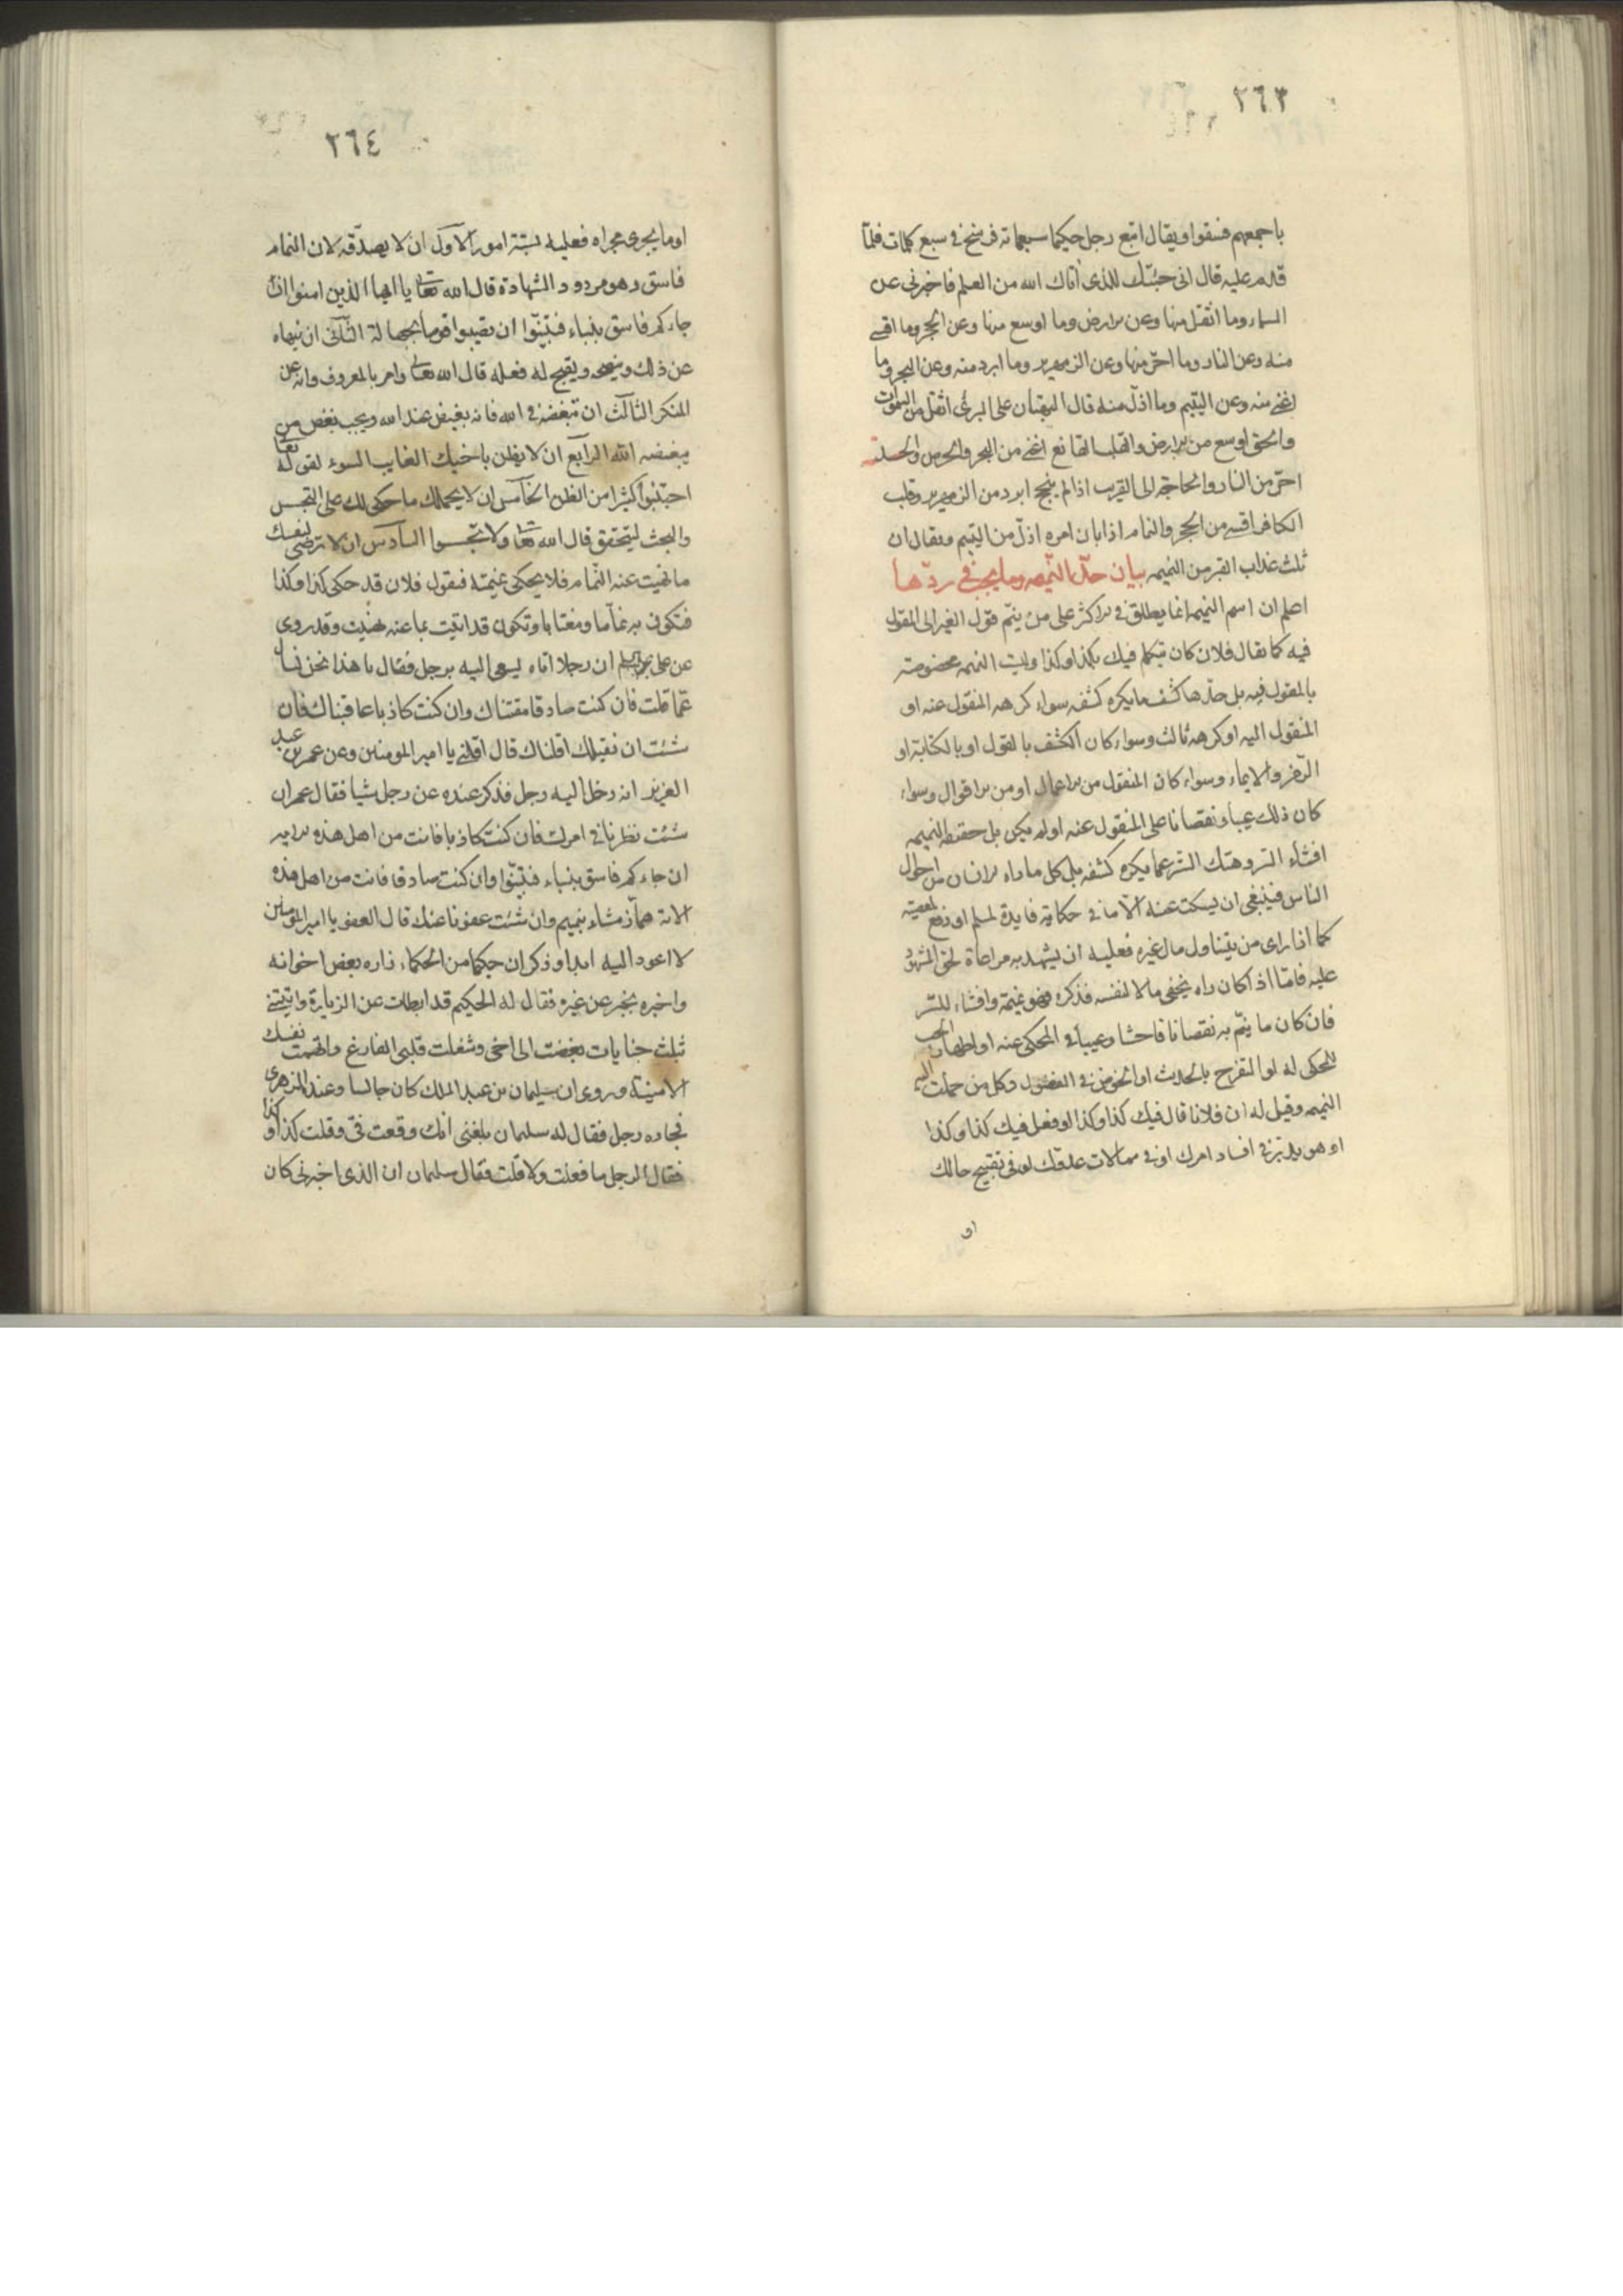 ٢٦٣
باجمعهم فسقوا ويقال اتبع رجل حكيما سبعمائة فرسخ في سبع كلمات فلمّا
قدم عليه قال انى جئتك للذى اتاك الله من العلم فاخبرنى عن
السماء وما اثقل منها وعن الارض وما اوسع منها وعن الحجر وما اقسى
منه وعن النار وما احرّ منها وعن الزمهرير وما ابرد منه وعن البحر وما
اغنى منه وعن اليتيم وما اذلّ منه قال البهتان على البرئ اثقل من السموات
والحق اوسع من الارض والقلب القانع اغنى من البحر والحرص والحسد
احرّ من النار والحاجة الى القريب اذا لم ينجح ابرد من الزمهرير وقلب
الكافر اقسى من الحجر والنمام اذا بان امره اذلّ من اليتيم ويقال ان
ثلث عذاب القبر من النميمه بيان حدّ النميمه وما يجب في ردّها
اعلم ان اسم النميمه انما يطلق في الاكثر على من ينمّ قول الغير الى المقول
فيه كما يقال فلان كان يتكلم فيك بكذا وكذا وليت النميمه مخصوصة
بالمقول فيه بل حدّها كشف ما يكره كشفه سواء كرهه المنقول عنه او
المنقول اليه او كرهه ثالث وسواء كان الكشف بالقول او بالكتابة او
الرّمز والايماء وسواء كان المنقول من الاعمال او من الاقوال وسواء
كان ذلك عيبا ونقصانا على المنقول عنه او لم يكن بل حقيقة النميمه
افشاء السّر وهتك السّتر عما يكره كشفه بل كل ما راه الانسان من احوال
الناس فينبغى ان يسكت عنه الّا ما في حكايته فايدة لمسلم او دفع لمعصية
كما اذا راى من يتناول مال غيره فعليه ان يشهد به مراعاة لحق المشهود
عليه فامّا اذا كان راه يخفى مالا لنفسه فذكره فهو نميمة وافشاء للسّر
فان كان ما ينمّ به نقصانا فاحشا وعيبا في المحكى عنه او اظهار الحب
للمحكى له او التفرح بالحديث او الخوض في الفضول وكل من حملت اليه
النميمه وقيل له ان فلانا قال فيك كذا وكذا او فعل فيك كذا وكذا
او هو يدبّر في افساد امرك او في ممالات عدوّك او في تقبيح حالك
او
٢٦٤
او ما يجرى مجراه فعليه بستّة امور الاوّل ان لا يصدّقه لان النمام
فاسق وهو مردود الشهادة قال الله تعا يا ايها الذين امنوا ان
جاءكم فاسق بنباء فتبيّنوا ان تصيبوا قوما بجهالة الثانى ان ينهاه
عن ذلك وينصحه ويقبح له فعله قال الله تعالى وامر بالمعروف وانه عن
المنكر الثالث ان تبغضه في الله فانه بغيض عند الله ويجب بغض من
يبغضه الله الرابع ان لا يظن باخيك الغايب السوء لقوله تعا
اجتنبوا كثيرا من الظن الخامس ان لا يحملك ما حكى لك على التجسس
والبحث ليتحقق قال الله تعا ولا تجسسوا السادس ان لا ترضى لنفسك
ما نهيت عنه النّمام فلا يحكى نميمته فيقول فلان قد حكى كذا وكذا
فتكون به نمّاما ومغتابا وتكون قد اتيت بما عنه نهيت وقد روى
عن على ان رجلا اتاه يسعى اليه برجل فقال يا هذا نحن نسأل
عمّا قلت فان كنت صادقا مقتناك وان كنت كاذبا عاقبناك فان
شئت ان نقيلك اقلناك قال اقلنى يا امير المومنين وعن عمر بن عبد
العزيز انه دخل اليه رجل فذكر عنده عن رجل شيا فقال عمر ان
شئت نظرنا في امرك فان كنت كاذبا فانت من اهل هذه الاية
ان جاءكم فاسق بنباء فتبيّنوا وان كنت صادقا فانت من اهل هذه
الاية همّاز مشاء بنميم وان شئت عفونا عنك قال العفو يا امير المومنين
لا اعود اليه ابدا وذكر ان حكيما من الحكماء زاره بعض اخوانه
واخبره بخبر عن غيره فقال له الحكيم قد ابطات عن الزيارة واتيتنى
بثلث جنايات بغضت الى اخى وشغلت قلبى الفارغ واتهمت نفسك
الامينة وروى ان سليمان بن عبد الملك كان جالسا وعنده الزهرى
فجاءه رجل فقال له سليمان بلغنى انك وقعت فىّ وقلت كذا وكذا
فقال الرجل ما فعلت ولا قلت فقال سليمان ان الذى اخبرنى كان